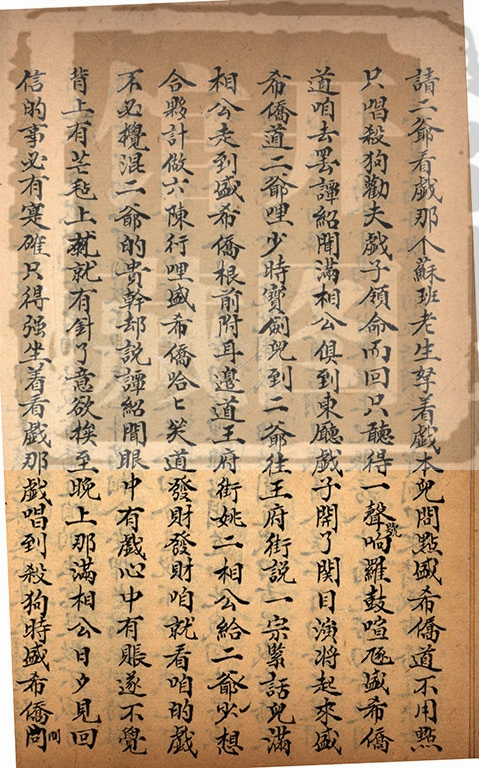 請二爺看戲那个蘇班老生拏着戲本兒問點盛希僑道不用點
只唱殺狗勸夫戲子領命而回只聽得一聲號响羅鼓喧
盛希僑
道咱去罷譚紹聞滿相公俱到東廳戲子開了関目演將起來盛
希僑道二爺哩少時寶劍兒到二爺往王府街說一宗緊話兒滿
相公走到盛希僑根前附耳邉道王府街姚二相公給二爺少想
合夥計做六陳行哩盛希僑哈匕笑道發財發財咱就看咱的戲
不必攪混二爺的貴幹却說譚紹聞眼中有戲心中有賬遂不覺
背上有芒毡上就有針了意欲挨至晚上那滿相公日夕見回
信的事必有寔確只得强坐着看戲那戲唱到殺狗時盛希僑問